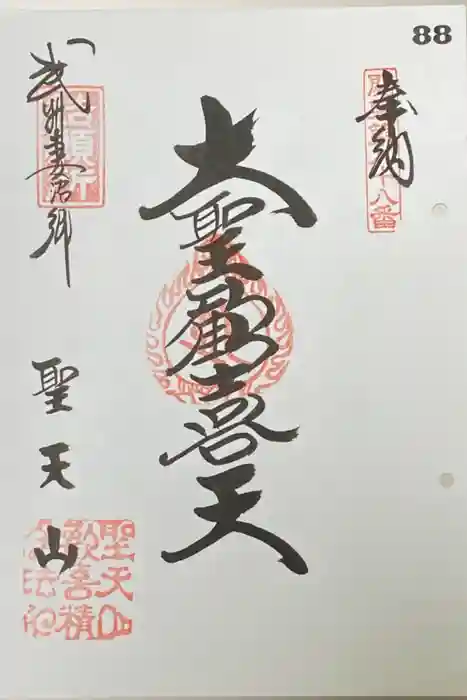 88
奉納
大聖歓喜天
武州妻沼郷
聖天山
聖天山
歓喜積